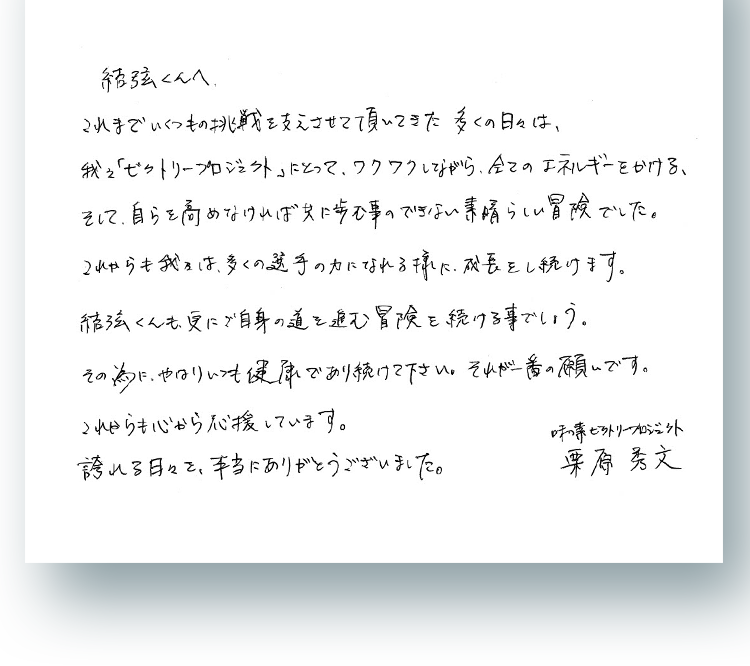 結弦くんへ、
これまでいくつもの挑戦を支えさせて頂いてきた 多くの日々は、
我々「ビクトリープロジェクト」にとって、ワクワクしながら、全てのエネルギーをかける、
そして、自らを高めなければ共に歩む事のできない素晴らしい冒険でした。
これからも我々は、多くの選手の力になれる様に、成長をし続けます。
結弦くんも、更にご自身の道を進む冒険を続ける事でしょう。
その為に、やはりいつも健康であり続けて下さい。それが一番の願いです。
これからも心から応援しています。
誇れる日々を、本当にありがとうございました。
味の素ビクトリープロジェクト
栗原 秀文